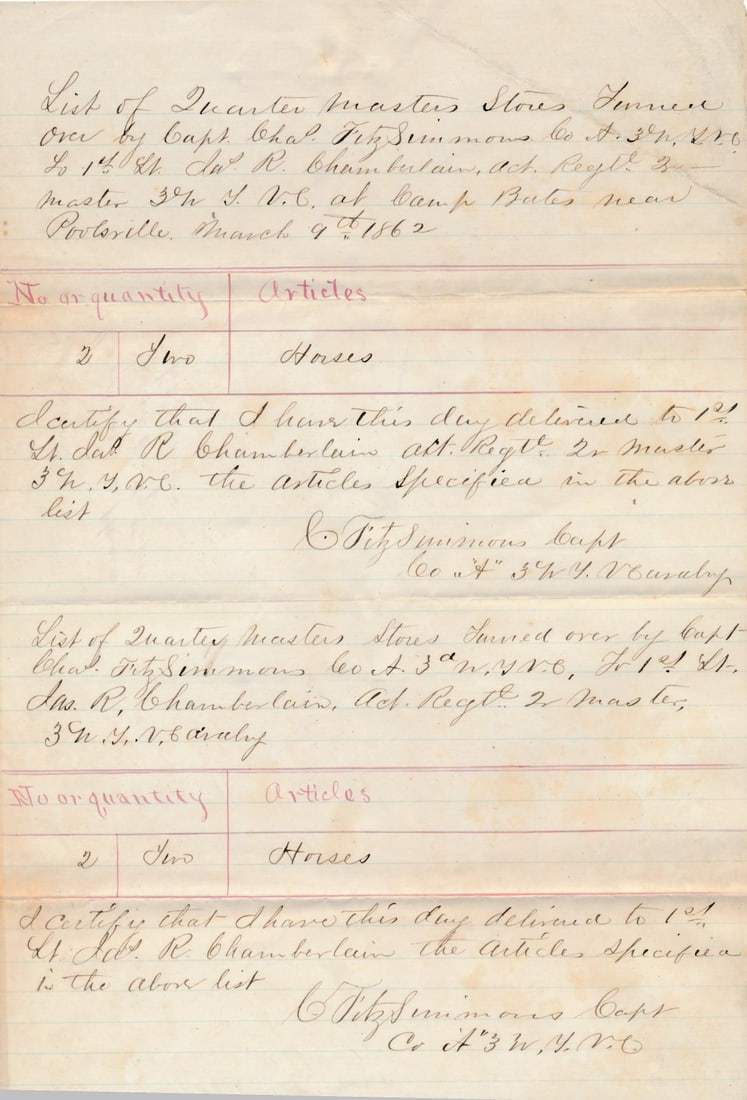 List of Quarter Masters Stores Turned
over by Capt. Chas. FitzSimmons Co A. 3d N. Y. V. C.
To 1st Lt. Jas. R. Chamberlain, act. Regtl. Qr—
master 3d N Y. V. C. at Camp Bates near
Poolsville. March 9th 1862
No or quantity Articles
2 Two Horses
I certify that I have this day delivered to 1st.
Lt. Jas. R Chamberlain act. Regtl. Qr Master
3d N. Y. V. C. the articles specified in the above
list
C FitzSimmons Capt
Co "A" 3d N Y. V Cavalry
List of Quarter Masters Stores Turned over by Capt
Chas. FitzSimmons Co A. 3d N. Y V. C, To 1st Lt.
Jas. R. Chamberlain, Act. Regtl. Qr Master,
3d N. Y. V. Cavalry
No or quantity Articles
2 Two Horses
I certify that I have this day delivered to 1st.
Lt Jas. R. Chamberlain the articles specified
in the above list
C FitzSimmons Capt
Co "A" 3d N. Y. V. C